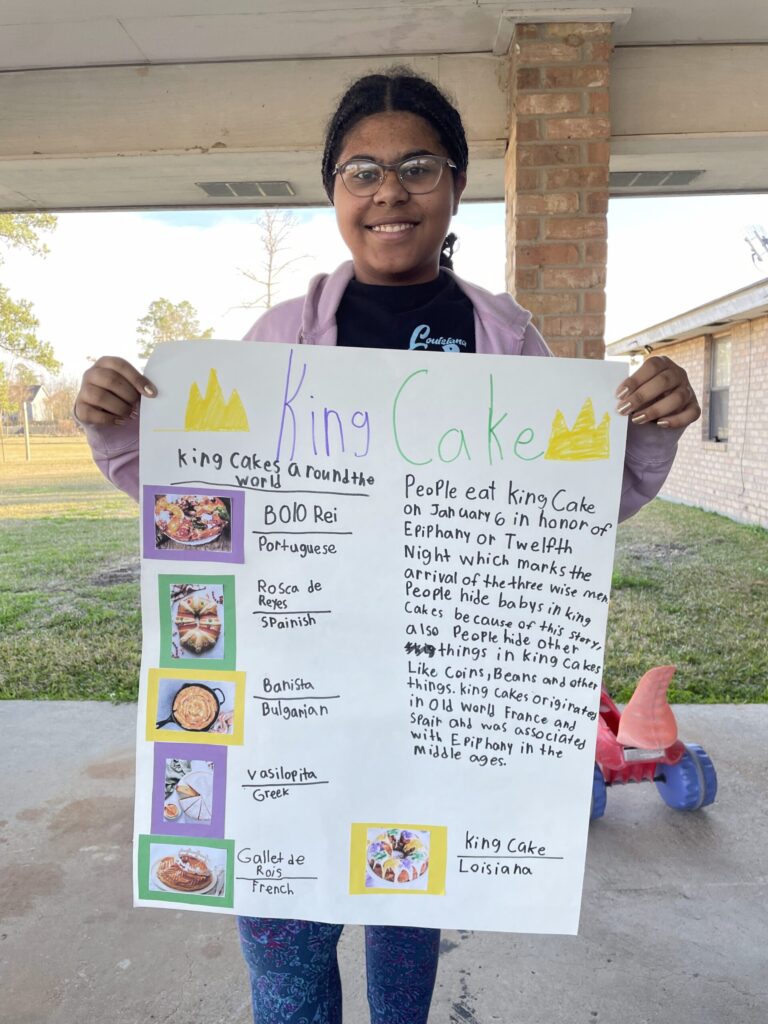 Louisiana
King Cake
King Cakes around the
world
Bolo Rei
Portuguese
Rosca de
Reyes
Spainish
Banista
Bulganian
Vasilopita
Greek
Gallet de
Rois
French
People eat King Cake
on January 6 in honor of
Epiphany or Twelfth
Night which marks the
arrival of the three wise men
People hide babys in king
Cakes because of this story,
also People hide other
things in king Cakes
Like Coins, Beans and other
things. king Cakes originated
in Old World France and
Spair and was associated
with Epiphany in the
Middle ages.
King Cake
Loisiana